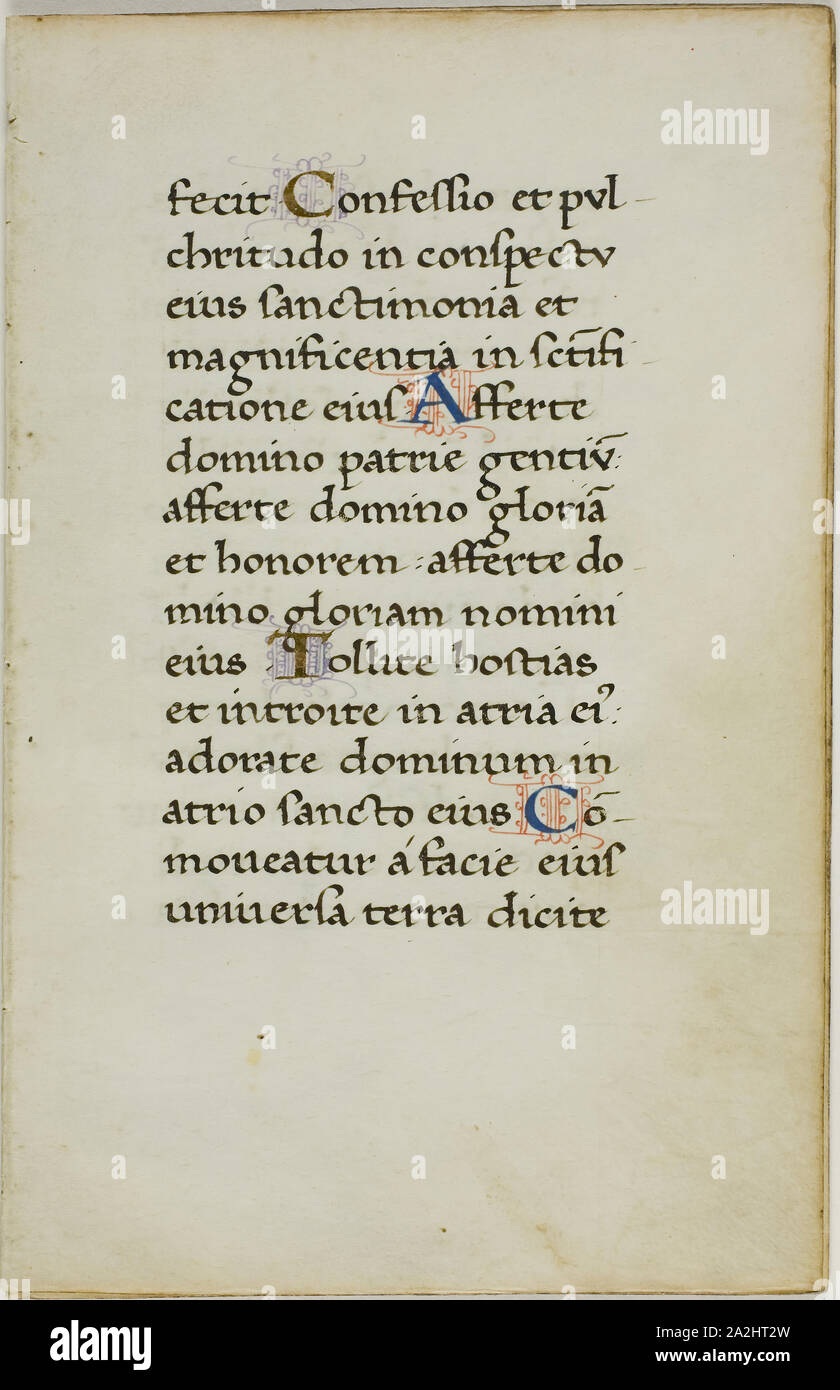 fecit Confessio et pvl-
chritudo in conspectv
eius sanctimonia et
magnificentia in sct̄ifi-
catione eius Afferte
domino patrie gentiv̄:
afferte domino gloriā
et honorem: afferte do
mino gloriam nomini
eius Tollite hostias
et introite in atria ei⁹:
adorate dominum in
atrio sancto eius Cō-
moueatur á facie eius
universa terra dicite
alamy
alamy
alamy
Image ID: 2A2HT2W
www.alamy.com